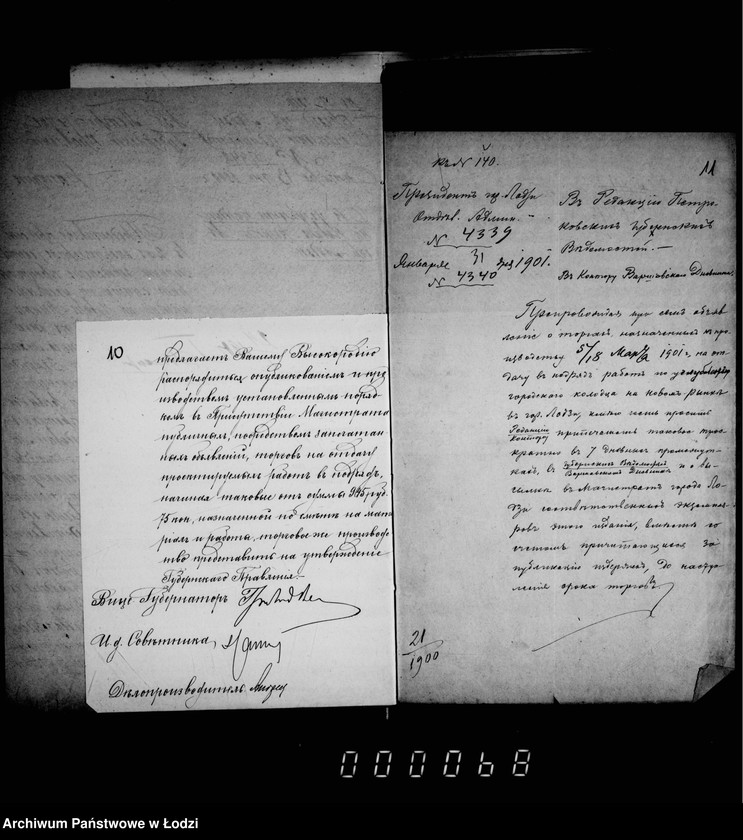 10
предлагаетъ Вашему Высокородію
распорядиться опубликованіемъ и про-
изводствомъ установленнымъ поряд-
комъ въ Присутствіи Магистрата
публичныхъ, посредствомъ запечатан-
ныхъ объявленій, торговъ на отдачу
проектируемыхъ работъ въ подрядъ,
начиная таковые отъ суммы 995 руб.
75 коп., назначенной по смѣтѣ на мате-
ріалъ и работы, торговое же производ-
ство представить на утвержденіе
Губернскаго Правленія.
Вице Губернаторъ
И. д. Совѣтника
Дѣлопроизводитель
къ № 140.
11
Президентъ гор. Лодзи
Отдѣл. Админ.
№ 4339
Января 31 дня 1901.
№ 4340
Въ Редакцію Петро-
ковскихъ Губернскихъ
Вѣдомостей.
Въ Контору Варшавскаго Дневника
Препровождая при семъ объяв-
леніе о торгахъ, назначенныхъ къ про-
изводству 5/18 Марта 1901 г., на от-
дачу въ подрядъ работъ по углубленію
городскаго колодца на новомъ рынкѣ
въ гор. Лодзи, имѣю честь просить
Редакцію
Контору припечатать таковое трое-
кратно въ 7 дневныхъ промежут-
кахъ, въ Губернскихъ Вѣдомостяхъ
Варшавскомъ Дневникѣ и о вы-
сылкѣ въ Магистратъ города Ло-
дзи соотвѣтственныхъ экземпля-
ровъ этого изданія, вмѣстѣ со
счетомъ причитающихся за
публикацію издержекъ, до наступ-
ленія срока торговъ
21
1900
000068
Archiwum Państwowe w Łodzi